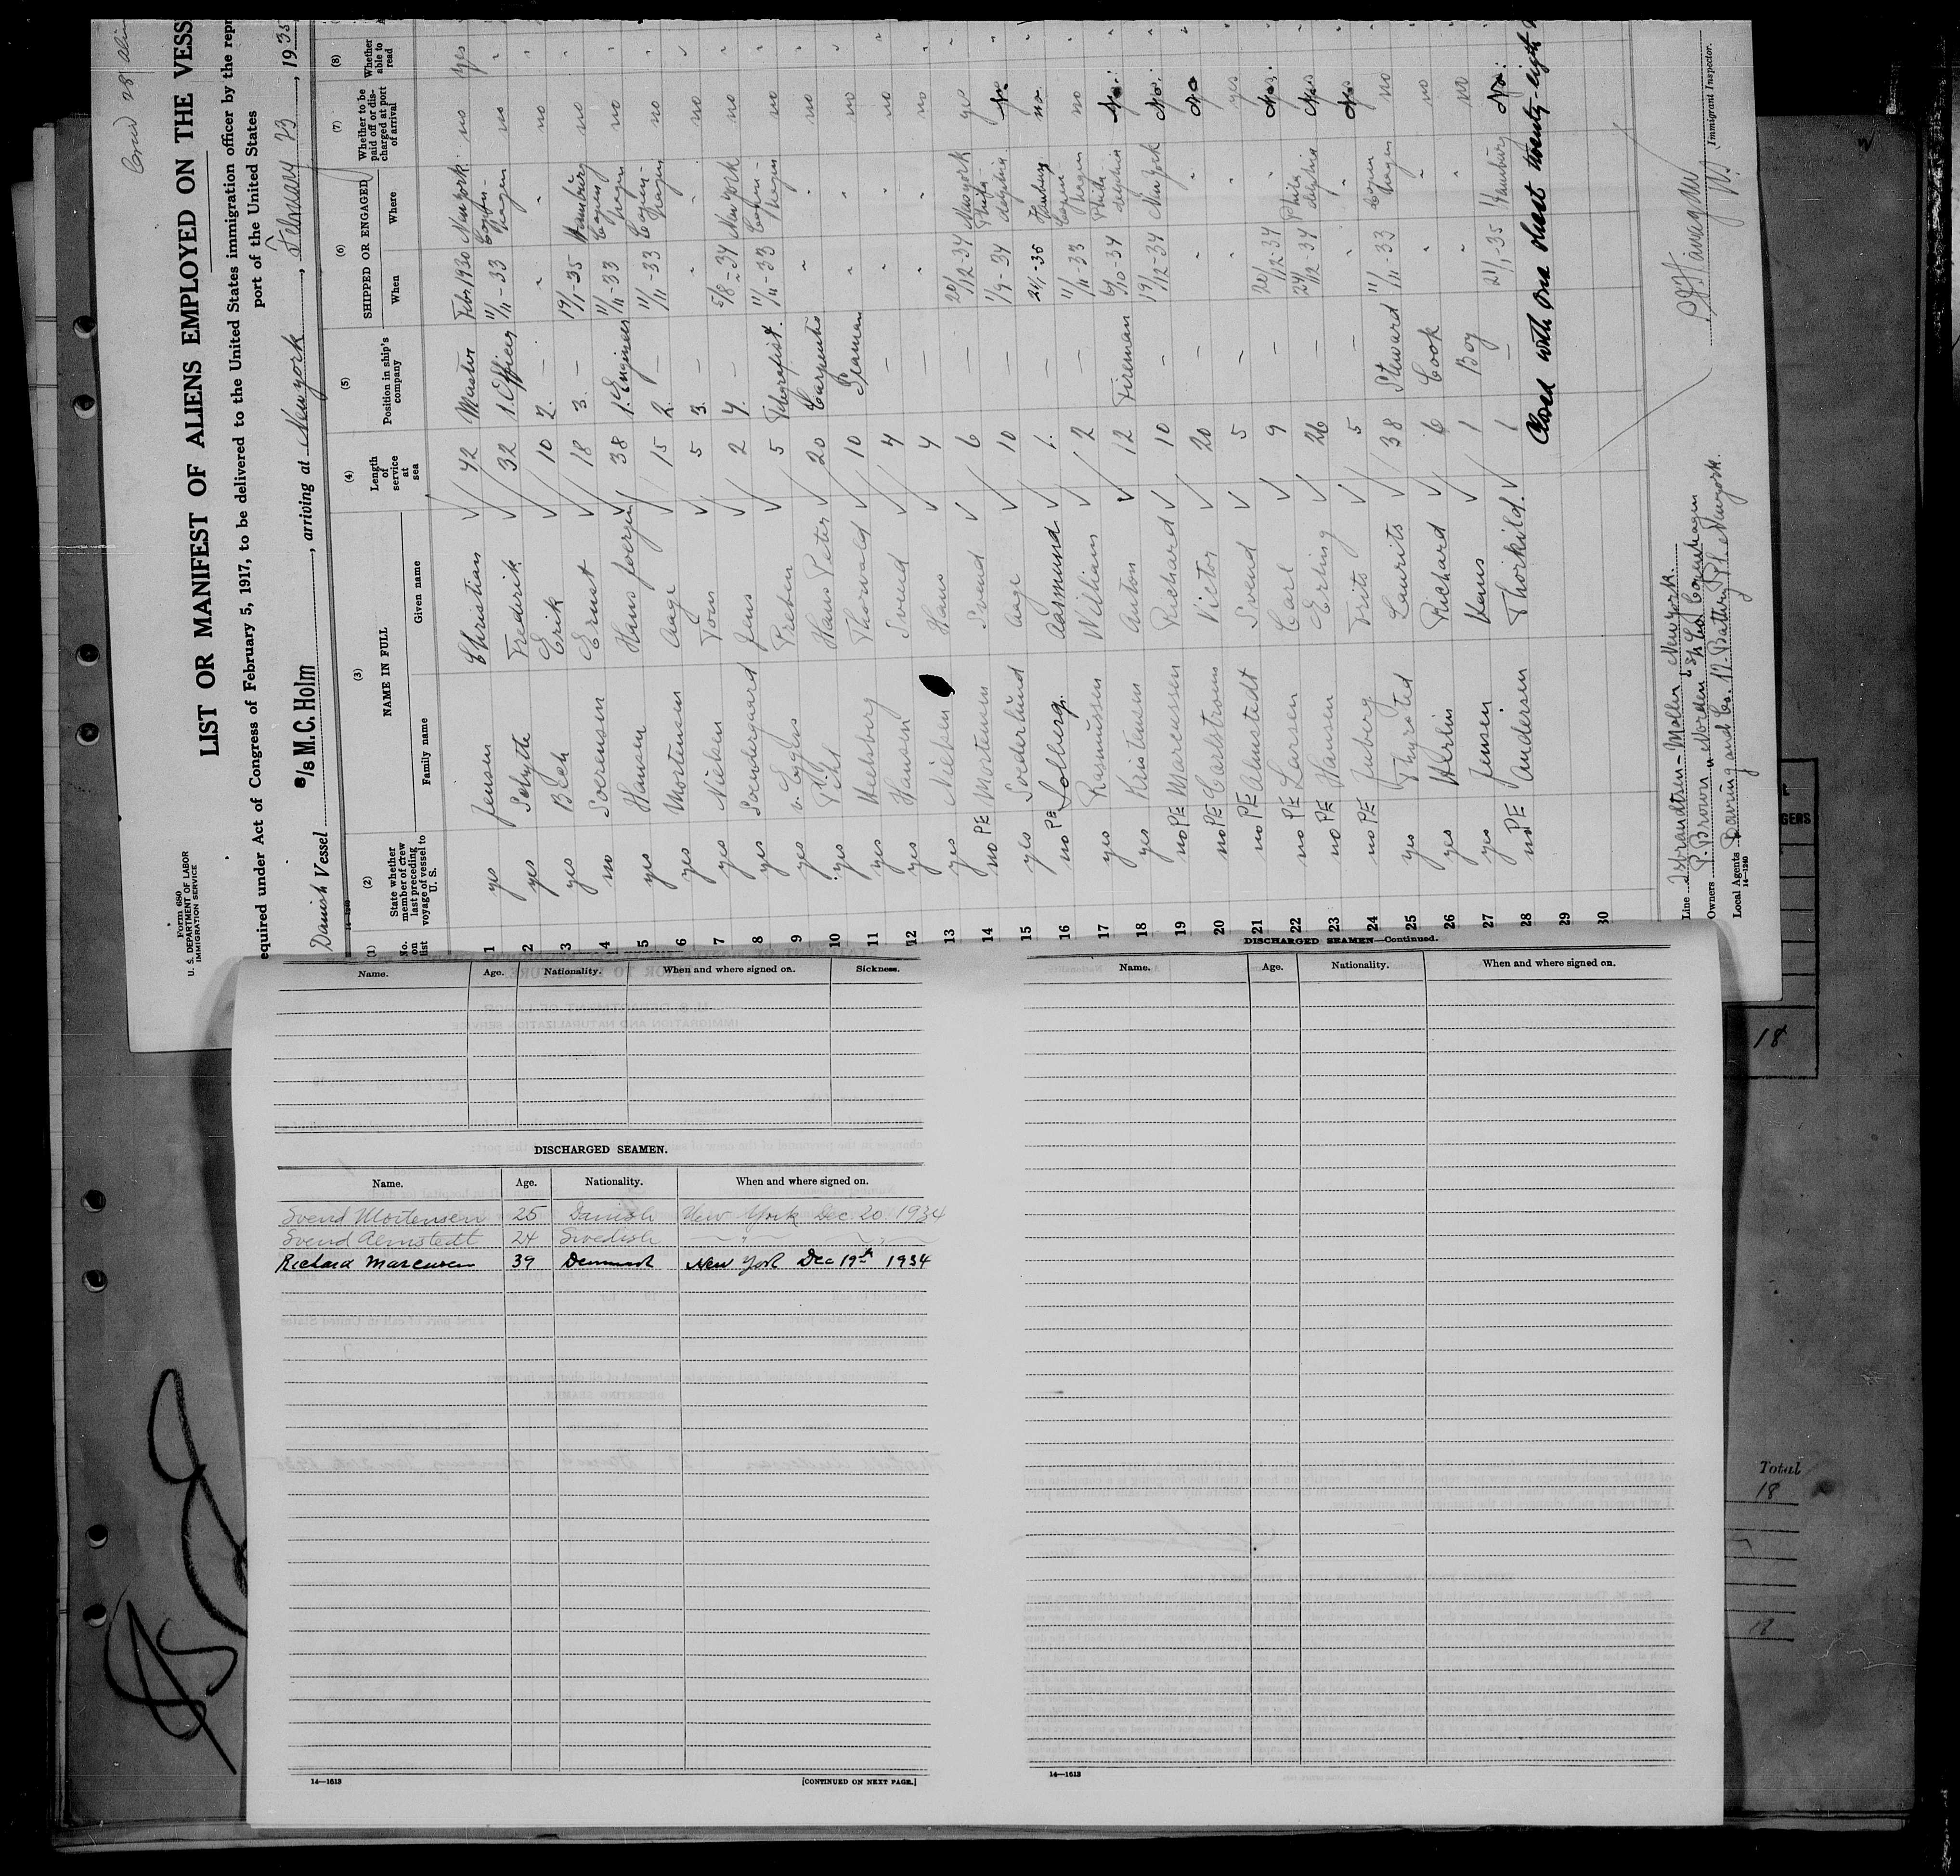 Form 680
U. S. DEPARTMENT OF LABOR
IMMIGRATION SERVICE
LIST OR MANIFEST OF ALIENS EMPLOYED ON THE VESS
equired under Act of Congress of February 5, 1917, to be delivered to the United States immigration officer by the rep
port of the United States
Danish Vessel s/s M.C. Holm, arriving at New york, February 23, 1935
(1) (2) (3) (4) (5) (6) (7) (8)
No. on list
State whether member of crew last preceding voyage of vessel to U. S.
NAME IN FULL
Family name Given name
Length of service at sea
Position in ship's company
SHIPPED OR ENGAGED
When Where
Whether to be paid off or discharged at port of arrival
Whether able to read
1 yes Jensen Christian 42 Master Febr. 1930 New york no yes
2 yes Schytte Frederik 32 1. Officer 11/11-33 Copenhagen no "
3 yes Erik 10 2. — " " no "
4 no Soerensen Ernst 18 3. — 19/1-35 Hamburg no "
5 yes Hansen Hans Joergen 38 1. Engineer 11/11-33 Copenhagen no "
6 yes Mortensen Aage 15 2. — 11/11-33 Copenhagen no "
7 yes Nielsen 5 3. — " " no "
8 yes Soendergaard Jens 2 4. — 5/8-34 New york no "
9 yes Preben 5 Telegraphist. 11/11-33 Copenhagen no "
10 yes Pihl Hans Peter 20 Carpenter " " no "
11 yes Thorvald 10 Seaman " " no "
12 yes Hansen Svend 4 — " " no "
13 yes Nielsen Hans 4 — " " no "
14 no PE Mortensen Svend 6 — 20/12-34 New york yes "
15 yes Soederlund Aage 10 — 1/9-34 Philadelphia no "
16 no PE Solberg. Aasmund 1. — 24/1-35 Hamburg no "
17 yes Rasmussen William 2 — 11/11-33 Copenhagen no "
18 yes Kristensen Anton 12 Fireman 6/10-34 Philadelphia No. "
19 no PE Marcussen Richard 10 — 19/12-34 New york No. "
20 no PE Carlstroem Victor 20 — " " No "
21 no PE Almstedt Svend 5 — " " yes "
22 no PE Larsen Carl 9 — 20/12-34 " No. "
23 no PE Hansen Erling 26 — 24/12-34 Philadelphia No "
24 no PE Juberg Frits 5 — " " No "
25 yes Thyrsted Laurits 38 Steward 11/11-33 Copenhagen no "
26 yes Werlin Richard 6 Cook " " no "
27 yes Jensen Hans 1 Boy " " no "
28 no PE Andersen Thorkild. 1 — 21/1-35 Hamburg No.
29 Closed with one sheet twenty-eight
30
Line Isbrandtsen-Moller, New york.
Owners
Local Agents Boyd.
14—1240
Immigrant Inspector.
Name. Age. Nationality. When and where signed on. Sickness.
DISCHARGED SEAMEN.
Name. Age. Nationality. When and where signed on.
Svend Mortensen 25 Danish New York Dec 20 1934
Svend Almstedt 24 Swedish — " — — " —
Richard Marcussen 39 Denmark New York Dec 19th 1934
14—1613 [CONTINUED ON NEXT PAGE.]
DISCHARGED SEAMEN—Continued.
Name. Age. Nationality. When and where signed on.
14—1613
GERS
18
Total
18
18